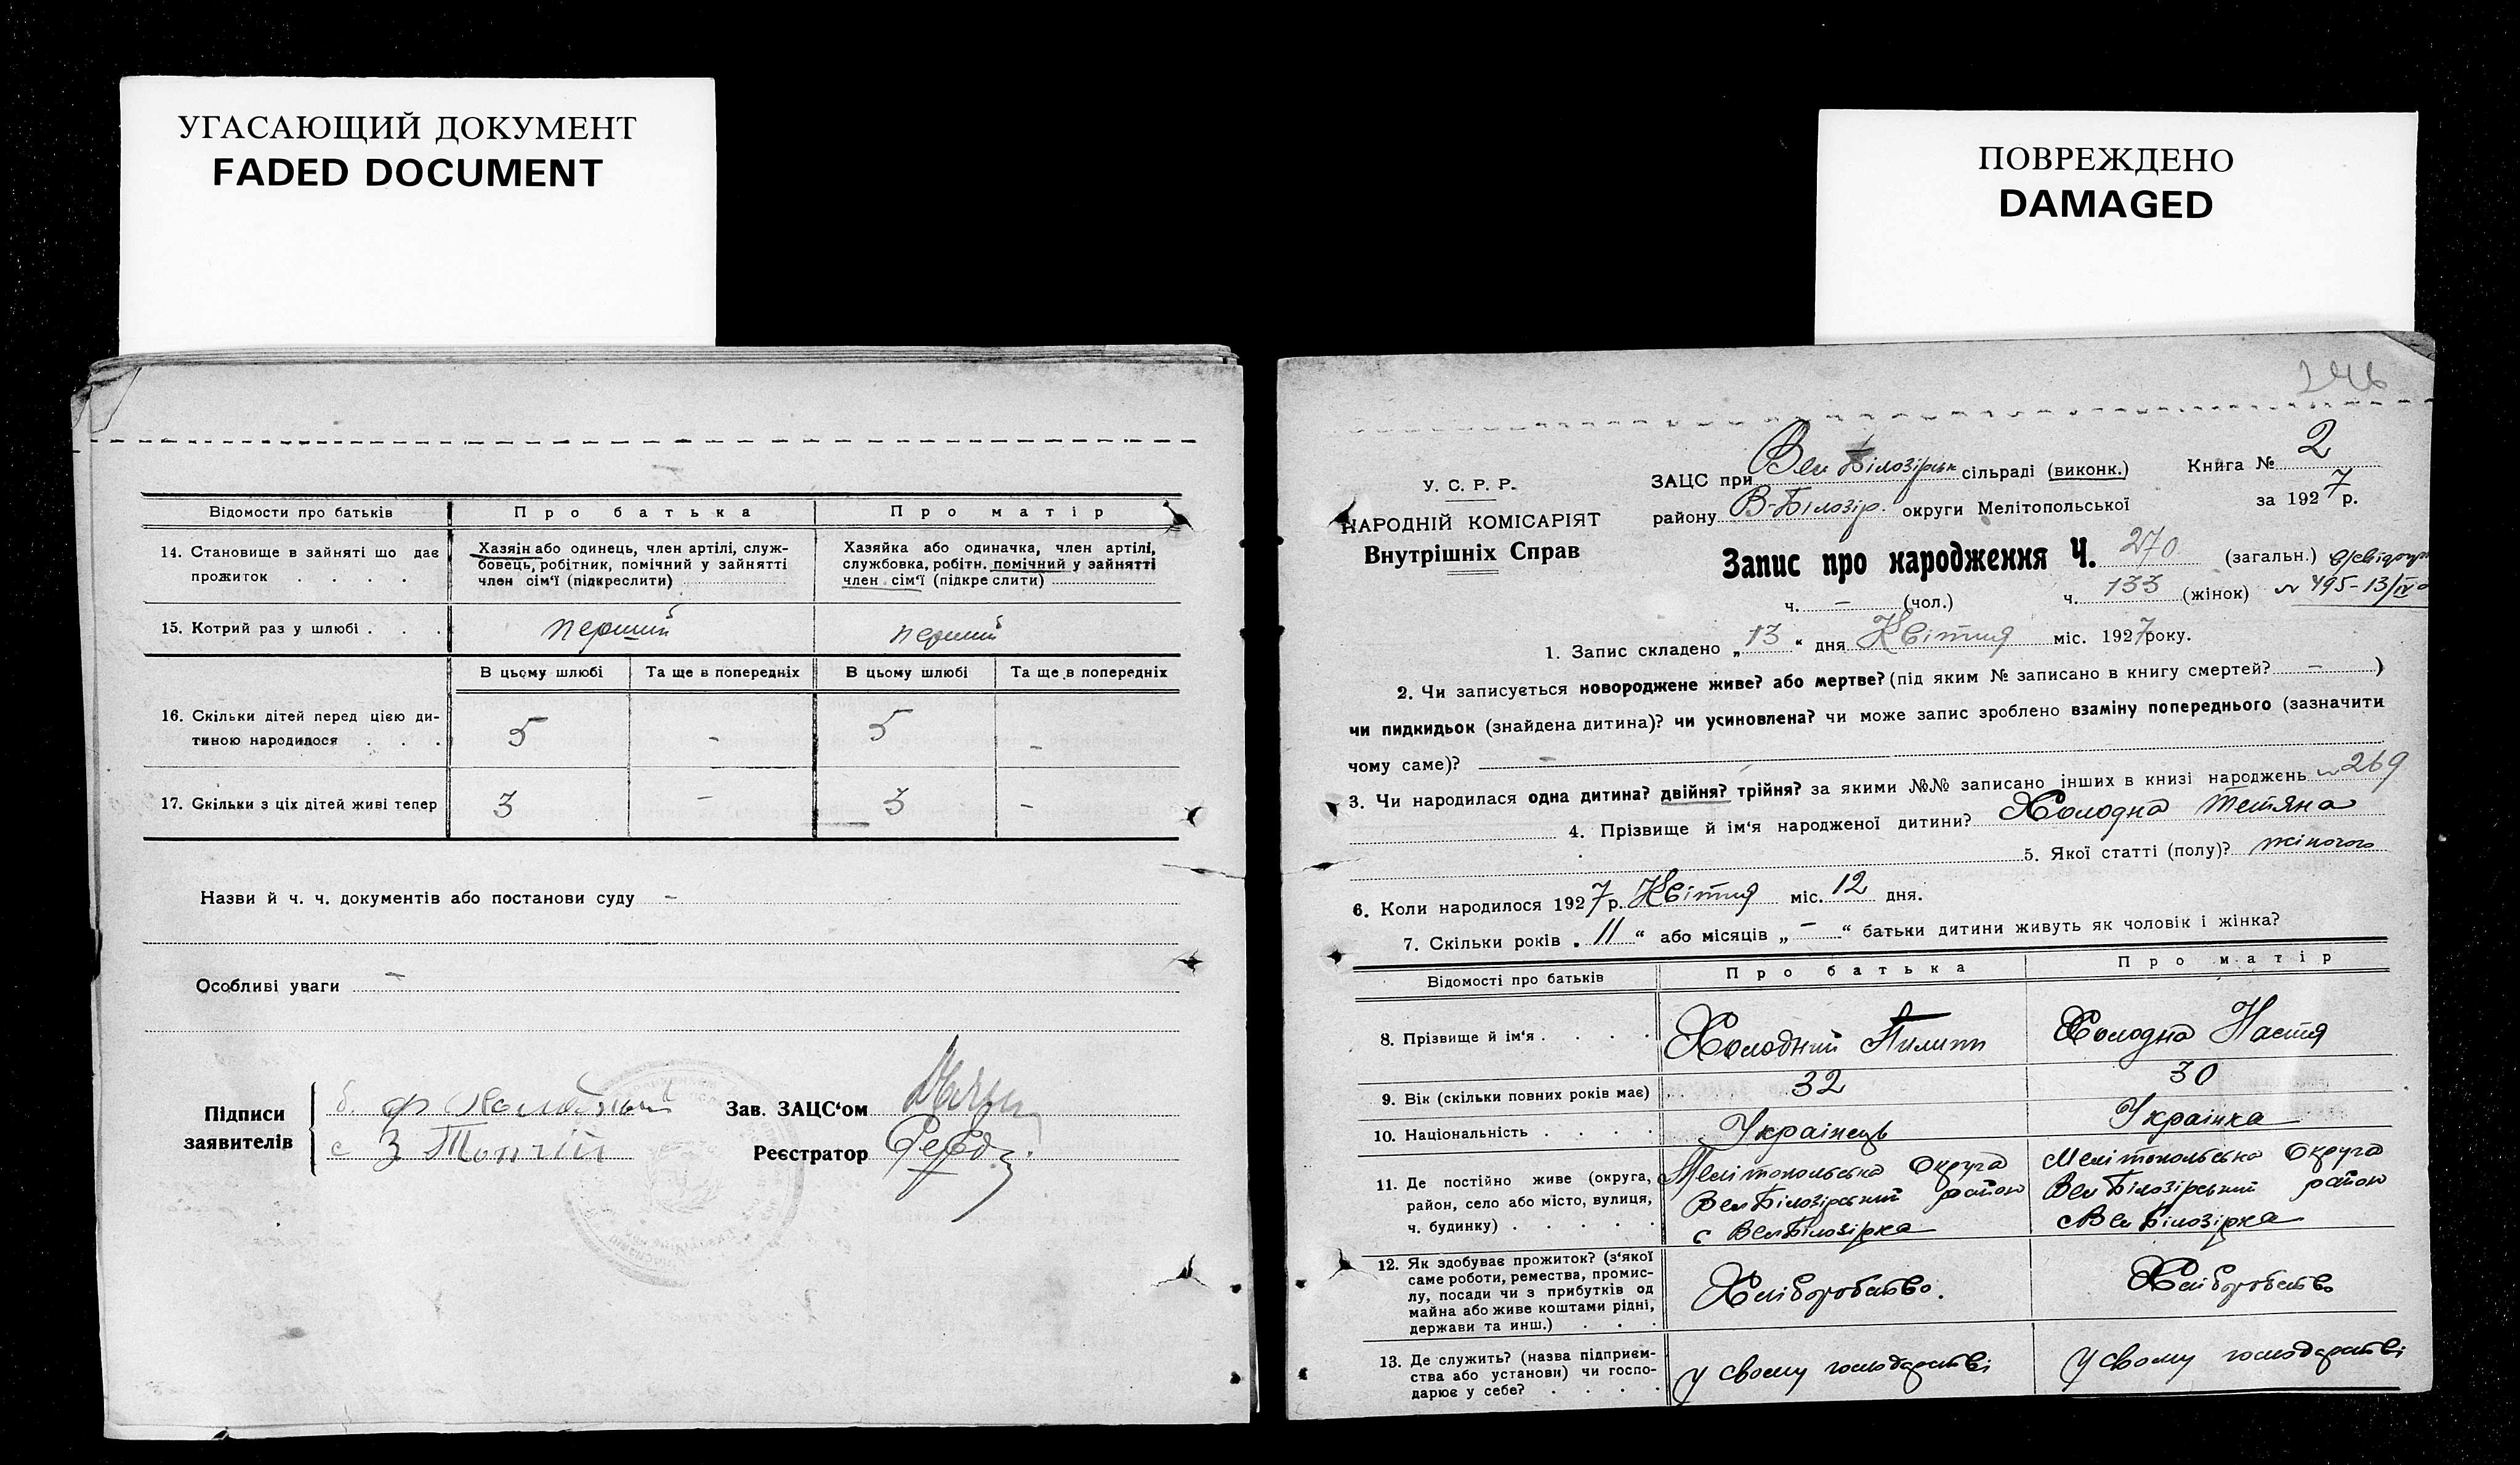 УГАСАЮЩИЙ ДОКУМЕНТ
FADED DOCUMENT
ПОВРЕЖДЕНО
DAMAGED
Відомости про батьків
Про батька
Про матір
14. Становище в зайняті що дає прожиток . . . .
Хазяін або одинець, член артілі, служ-
бовець, робітник, помічний у зайнятті
член сім'ї (підкреслити)
Хазяйка або одиначка, член артілі,
службовка, робітн. помічний у зайнятті
член сім'ї (підкреслити)
15. Котрий раз у шлюбі . . .
перший
перший
В цьому шлюбі
Та ще в попередніх
В цьому шлюбі
Та ще в попередніх
16. Скільки дітей перед цією ди-
тиною народилося . . .
5
-
5
-
17. Скільки з ціх дітей живі тепер
3
-
3
-
Назви й ч. ч. документів або постанови суду -
Особливі уваги -
Підписи
заявителів
З Топчій
Зав. ЗАЦС'ом
Реєстратор
246
У. С. Р. Р.
НАРОДНІЙ КОМІСАРІЯТ
Внутрішніх Справ
ЗАЦС при Вел Білозірськ сільраді (виконк.)
Книга № 2
району В-Білозір. округи Мелітопольської
за 1927 р.
Запис про народження Ч. 270 (загальн.)
ч. - (чол.) ч. 133 (жінок) № 495-13/IV
1. Запис складено „13" дня Квітня міс. 1927 року.
2. Чи записується новороджене живе? або мертве? (під яким № записано в книгу смертей? - )
чи пидкидьок (знайдена дитина)? чи усиновлена? чи може запис зроблено взаміну попереднього (зазначити
чому саме)? -
3. Чи народилася одна дитина? двійня? трійня? за якими №№ записано інших в книзі народжень № 269
4. Прізвище й ім'я народженої дитини? Холодна Тетяна
5. Якої статті (полу)? жіночого
6. Коли народилося 1927 р. Квітня міс. 12 дня.
7. Скільки років „11" або місяців „-" батьки дитини живуть як чоловік і жінка?
Відомості про батьків
Про батька
Про матір
8. Прізвище й ім'я . . . .
Холодний Пилип
Холодна Настя
9. Вік (скільки повних років має)
32
30
10. Національність . . . .
Українець
Українка
11. Де постійно живе (округа,
район, село або місто, вулиця,
ч. будинку) . . . . .
Мелітопольська Округа
Вел Білозірський район
с Вел Білозірка
Мелітопольська Округа
Вел Білозірський район
с Вел Білозірка
12. Як здобуває прожиток? (з'якої
саме роботи, ремества, промис-
лу, посади чи з прибутків од
майна або живе коштами рідні,
держави та инш.) . . .
Хліборобство.
Хліборобство
13. Де служить? (назва підприєм-
ства або установи) чи госпо-
дарює у себе? . . . .
У своему господарстві
У своему господарстві